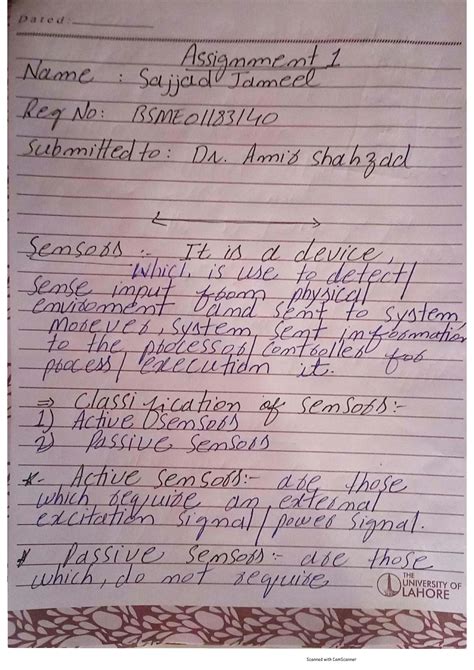 Dated:
Assignment 1
Name : Sajjad Jameel
Reg No: BSME01183140
Submitted to: Dr. Amir Shahzad
Sensors :- It is a device,
which is use to detect/
sense input from physical
enviroment and sent to system
morever, system sent information
to the processor/controller for
process/execution it.
⇒ Classification of sensors:-
1) Active Sensors
2) Passive Sensors
*- Active sensors:- are those
which require an external
excitation signal/power signal.
* Passive sensors:- are those
which, do not require
THE
UNIVERSITY OF
LAHORE
Scanned with CamScanner